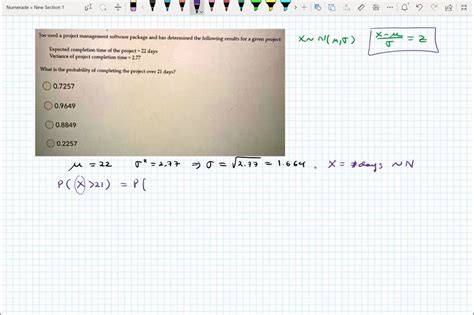 Numerade × New Section 1
Joe used a project management software package and has determined the following results for a given project:
Expected completion time of the project = 22 days
Variance of project completion time = 2.77
What is the probability of completing the project over 21 days?
0.7257
0.9649
0.8849
0.2257
X ~ N(μ,σ)
x-μ/σ = z
μ = 22 σ² = 2.77 ⇒ σ = √2.77 = 1.664 . X = #days ~N
P(X>21) = P(